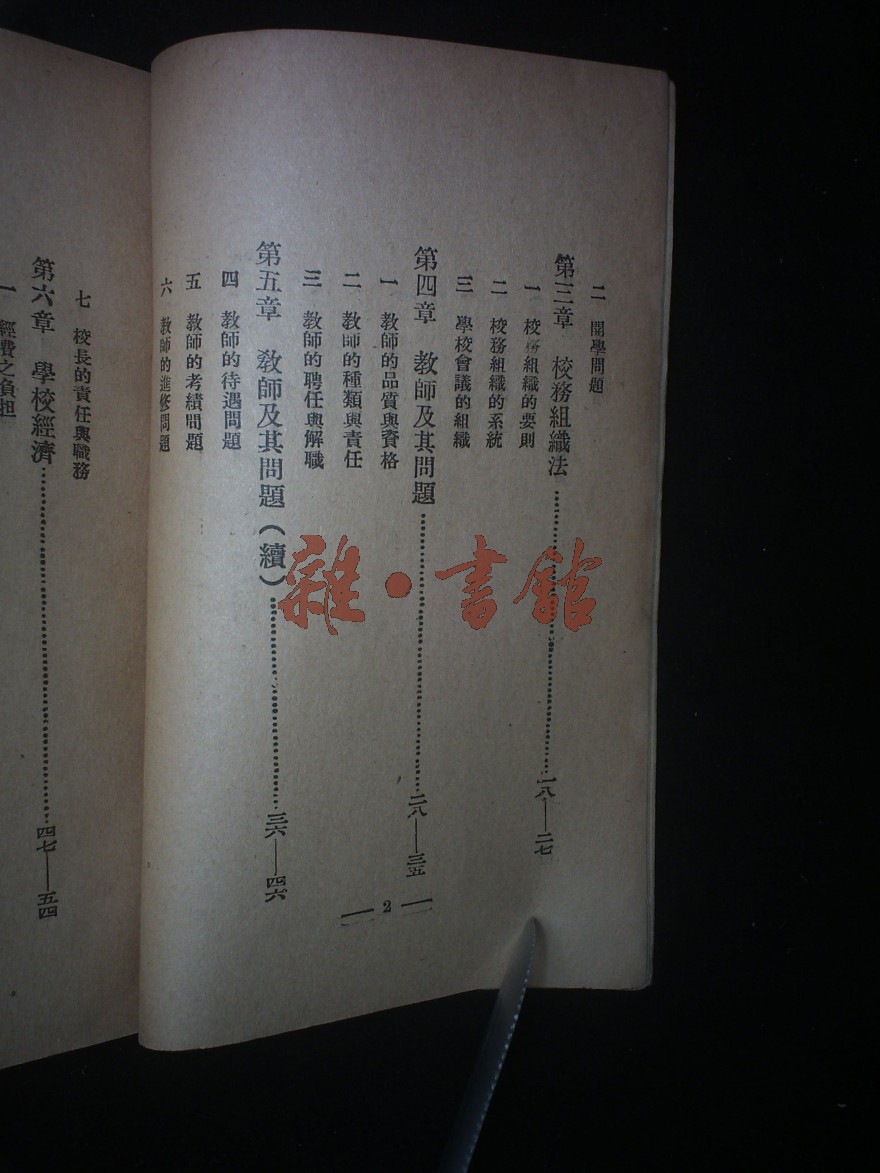 二 開學問題
第三章 校務組織法………一八——二七
一 校務組織的要則
二 校務組織的系統
三 學校會議的組織
第四章 教師及其問題………二八——三五
一 教師的品質與資格
二 教師的種類與責任
三 教師的聘任與解職
第五章 教師及其問題(續)………三六——四六
四 教師的待遇問題
五 教師的考績問題
六 教師的進修問題
2
七 校長的責任與職務
第六章 學校經濟………四七——五四
一 經費之負担
雜·書館